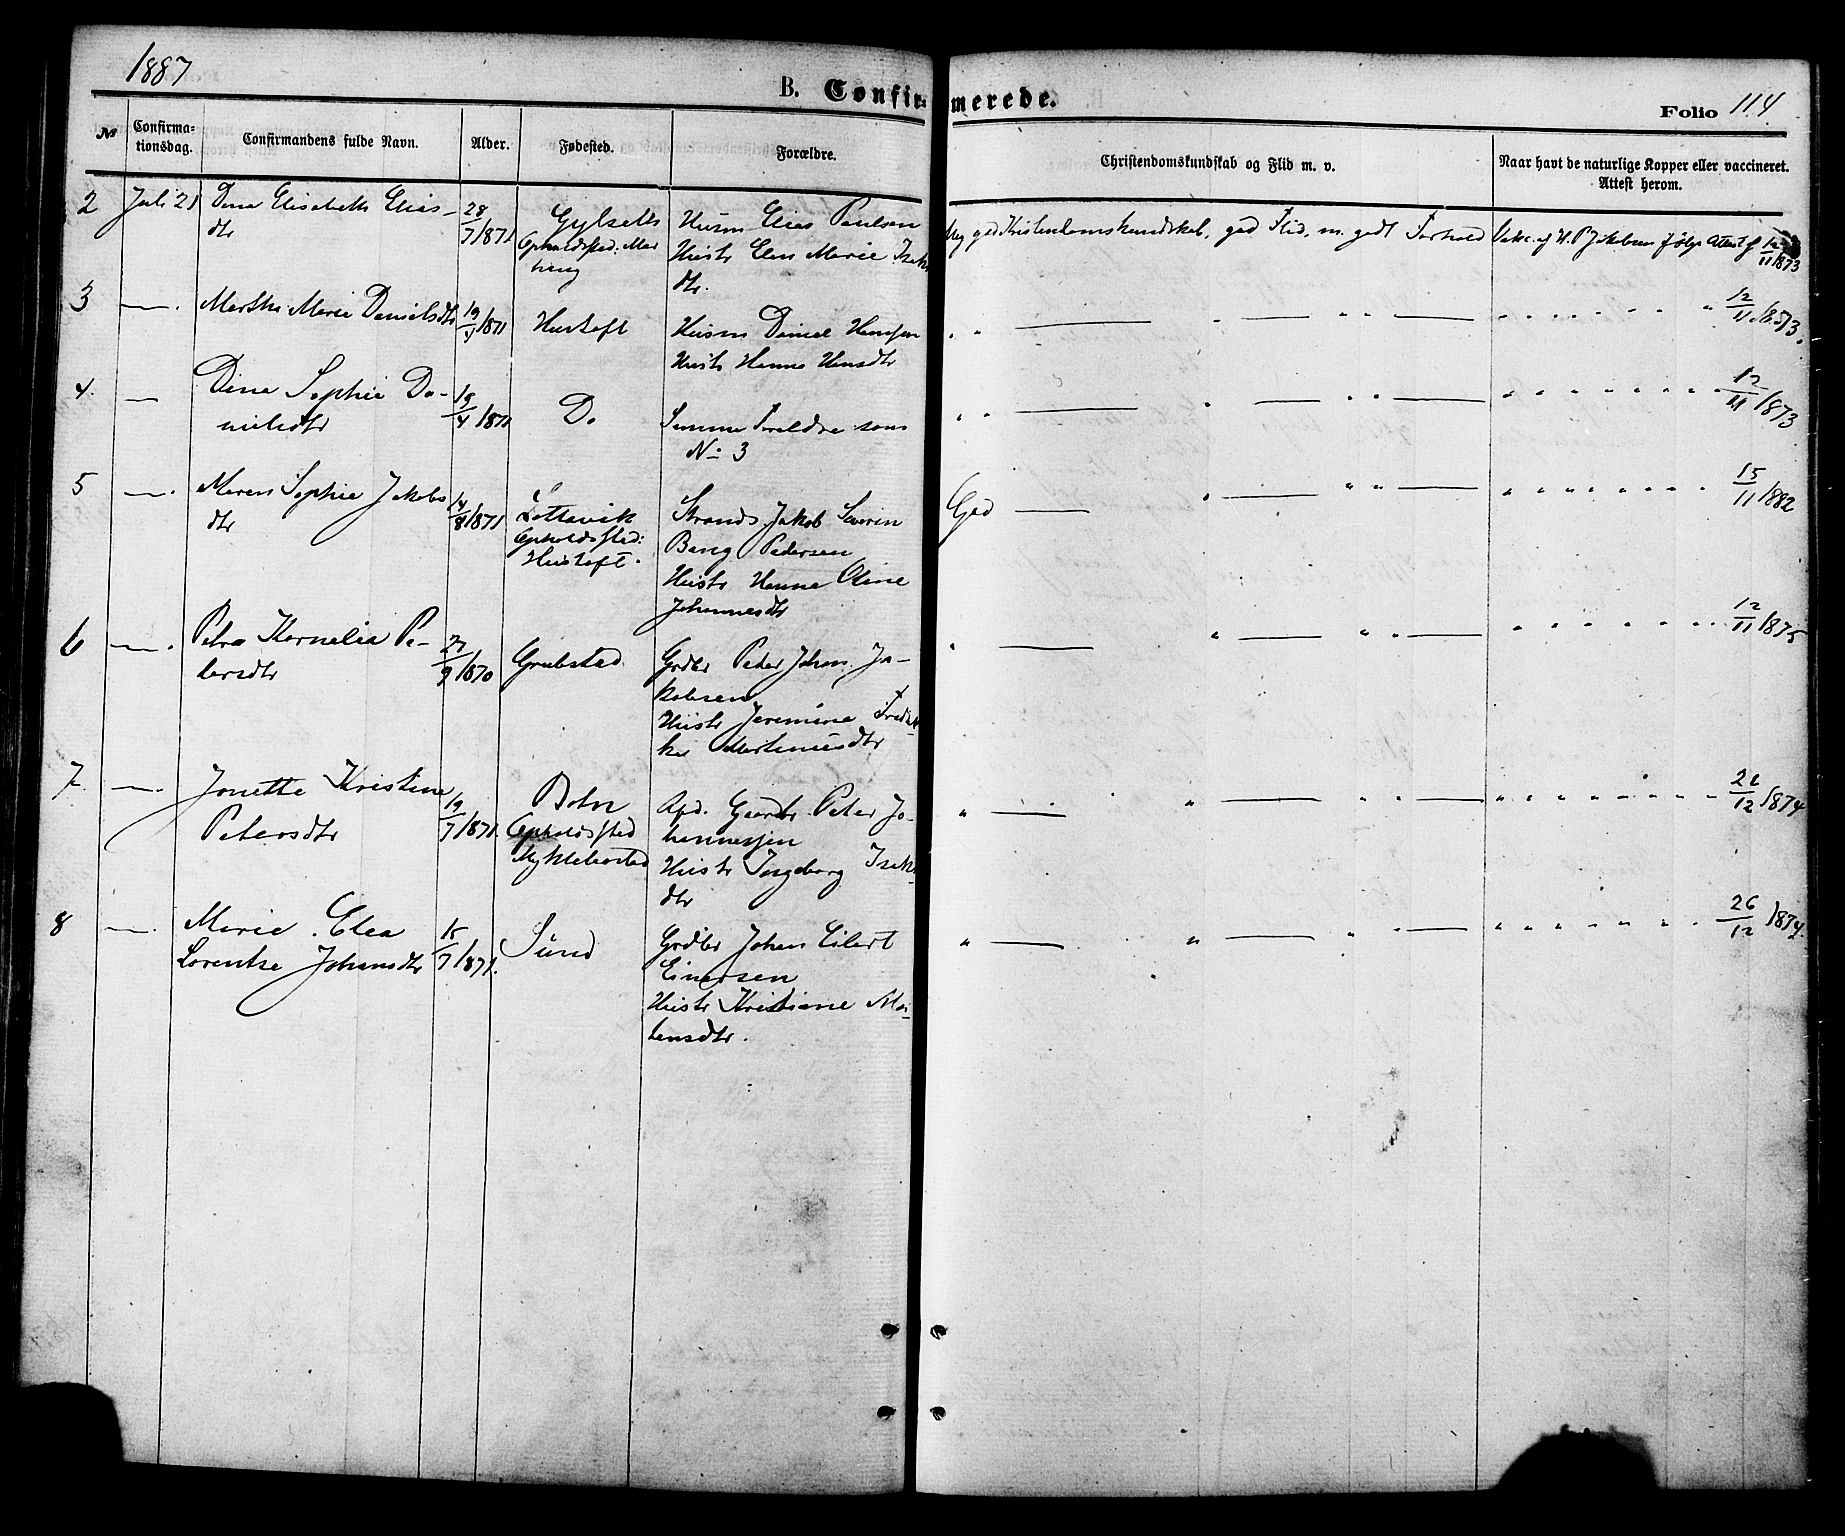 1887
B. Confirmerede.
Folio 114
№
Confirma-
tionsdag.
Confirmandens fulde Navn.
Alder.
Fødested.
Forældre.
Christendomskundskab og Flid m. v.
Naar havt de naturlige Kopper eller vaccineret.
Attest herom.
2 Juli 21 Dina Elisabeth Elias-
dtr
28/7 1871
Gylseth
Opholdssted:
Husm Elias Paulsen
Hustr Elen Marie Isaks
dtr.
Meg. god Kristendomskundskab, god Flid, m. godt Forhold
Vakc. af H. P. Jakobsen ifølge Attest af 12/11 1873
3 — Marthe Marie Danielsdtr
19/4 1871
Hustoft
Husm Daniel Hansen
Hustr Hanna Hansdtr
" " — " — " " — " " " " " " " 12/11 1873.
4. — Dina Sophie Da-
nielsdtr
19/4 1871
Do
Samme Foreldre som
No 3
" " — " — " " — " " " " " " " 12/11 1873
5 — Maren Sophie Jakobs
dtr
14/8 1871
Opholdssted:
Hustoft.
Strands. Jakob Severin
Berg Pedersen
Hustr Hanna Oline
Johannesdtr
God — " — " " — " " " " " " " 15/11 1882
6 — Petra Kornelia Pe-
tersdtr
27/9 1870
Grubstad
Grdbr Peter Johan Ja-
kobsen
Hustr Jeremine Fredrik-
ke Martinusdtr
" — " — " " — " " " " " " " 12/11 1875
7. — Jonette Kristine
Petersdtr
19/7 1871.
Botn
Opholdssted
Myklebostad
Afd. Gaardbr. Peter Jo-
hannessen
Hustr Ingeborg Isaks-
dtr
" — " — " " — " " " " " " " 26/12 1874
8 — Marie Elea
Lorentse Johansdtr
15/7 1871.
Sund
Grdbr Johan Eilert
Einersen
Hustr Kristiane Mor-
tensdtr.
" — " — " " — " " " " " " " 26/12 1874.